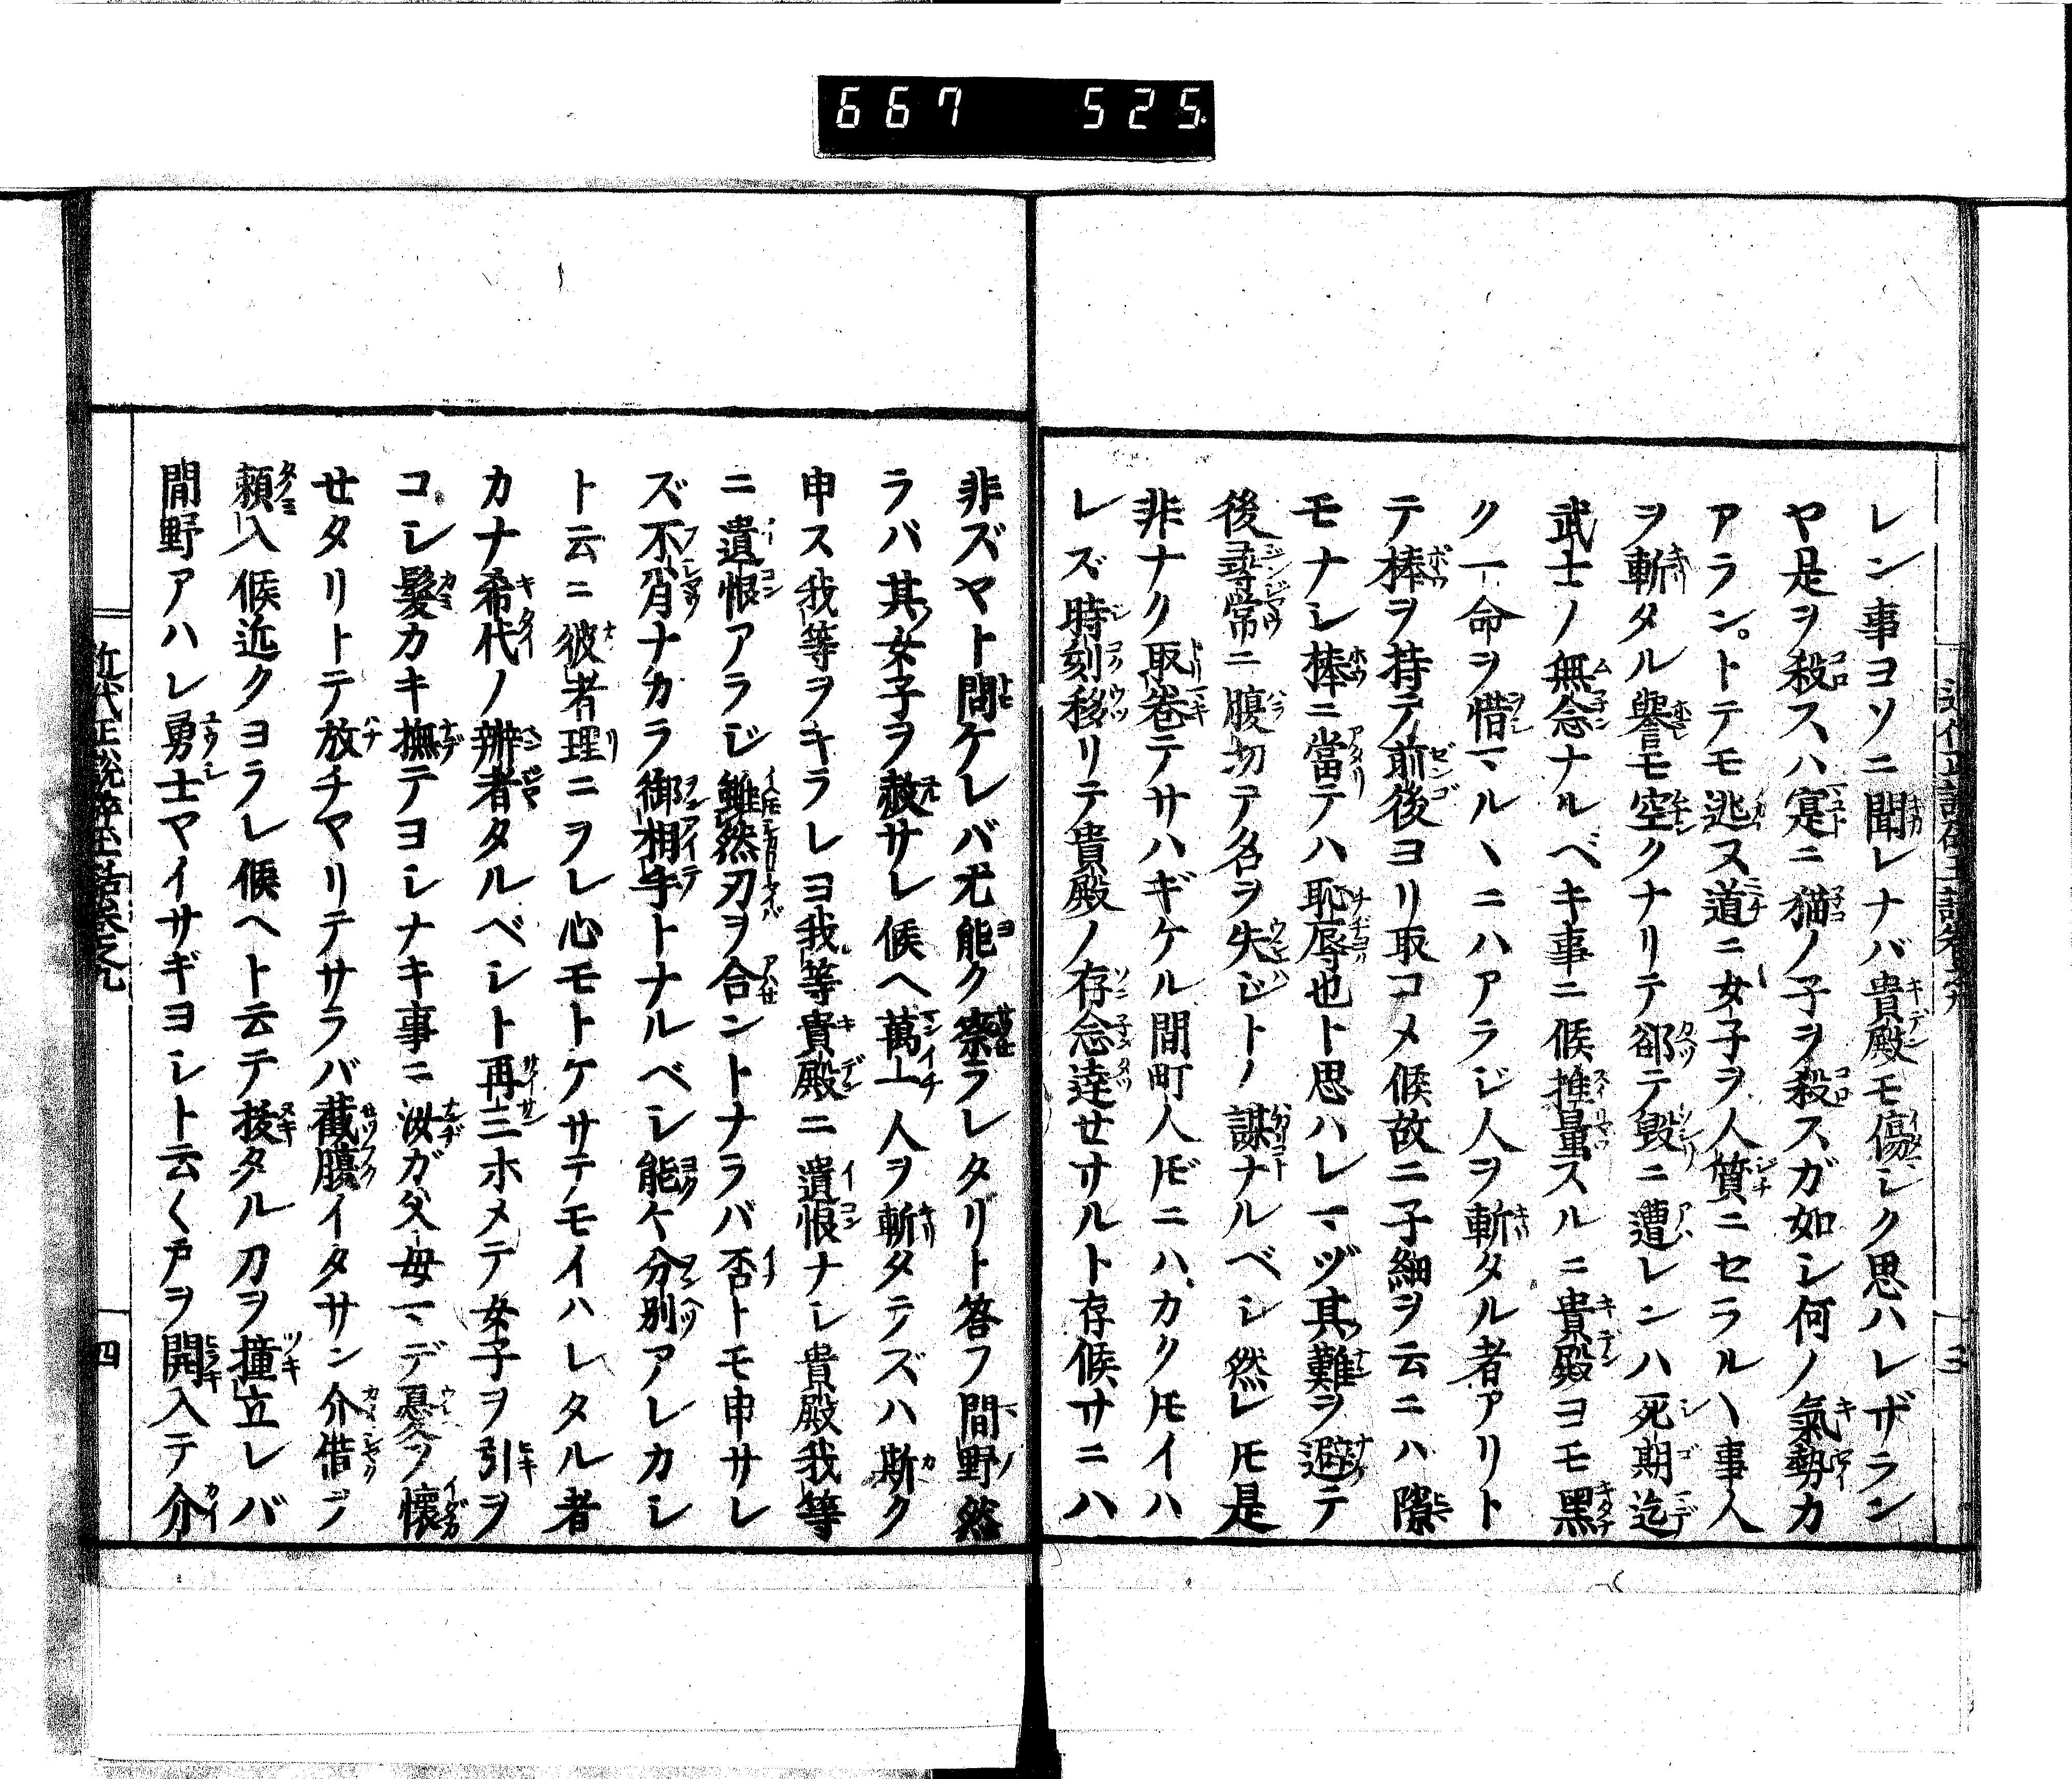 667 525
レン事コソニ聞レナバ貴殿モ傷シク思ハレザラン
ヤ是ヲ殺スハ寔ニ猫ノ子ヲ殺スガ如シ何ノ氣勢カ
アラン。トテモ迯ス道ニ女子ヲ人質ニセラルヽ事人
ヲ斬タル譽モ空クナリテ郤テ毀ニ遭レンハ死期迄
武士ノ無念ナルベキ事ニ候推量スルニ貴殿ヨモ黑
ク一命ヲ惜マルヽニハアラジ人ヲ斬タル者アリト
テ棒ヲ持テ前後ヨリ取コメ候故ニ子細ヲ云ニハ隙
モナシ棒ニ當テハ恥辱也ト思ハレマヅ其難ヲ避テ
後尋常ニ腹切テ名ヲ失ジトノ謀ナルベシ然レ𪜈是
非ナク取巻テサハギケル間町人𪜈ニハカク𪜈イハ
レズ時刻移リテ貴殿ノ存念達せサルト存候サニハ
非ズヤト問ケレバ尤能ク察ラレタリト答フ間野然
ラバ其女子ヲ赦サレ候ヘ萬一人ヲ斬タテズハ斯ク
申ス我等ヲキラレヨ我等貴殿ニ遺恨ナシ貴殿我等
ニ遺恨アラジ雖然刃ヲ合ントナラバ否トモ申サレ
ズ不肖ナカラ御相手トナルベシ能ク分別アレカシ
ト云ニ彼者理ニヲレ心モトケサテモイハレタル者
カナ希代ノ辨者タルベシト再三ホメテ女子ヲ引ヲ
コシ髮カキ撫テヨシナキ事ニ汝ガ父母マデ憂ヲ懷
せタリトテ放チヤリテサラバ截腹イタサン介借ヲ
頼入候近クヨラレ候ヘト云テ抜タル刀ヲ撞立レバ
間野アハレ勇士ヤイサギヨシト云〱戸ヲ開入テ介
近代正説砕玉話巻之九
四